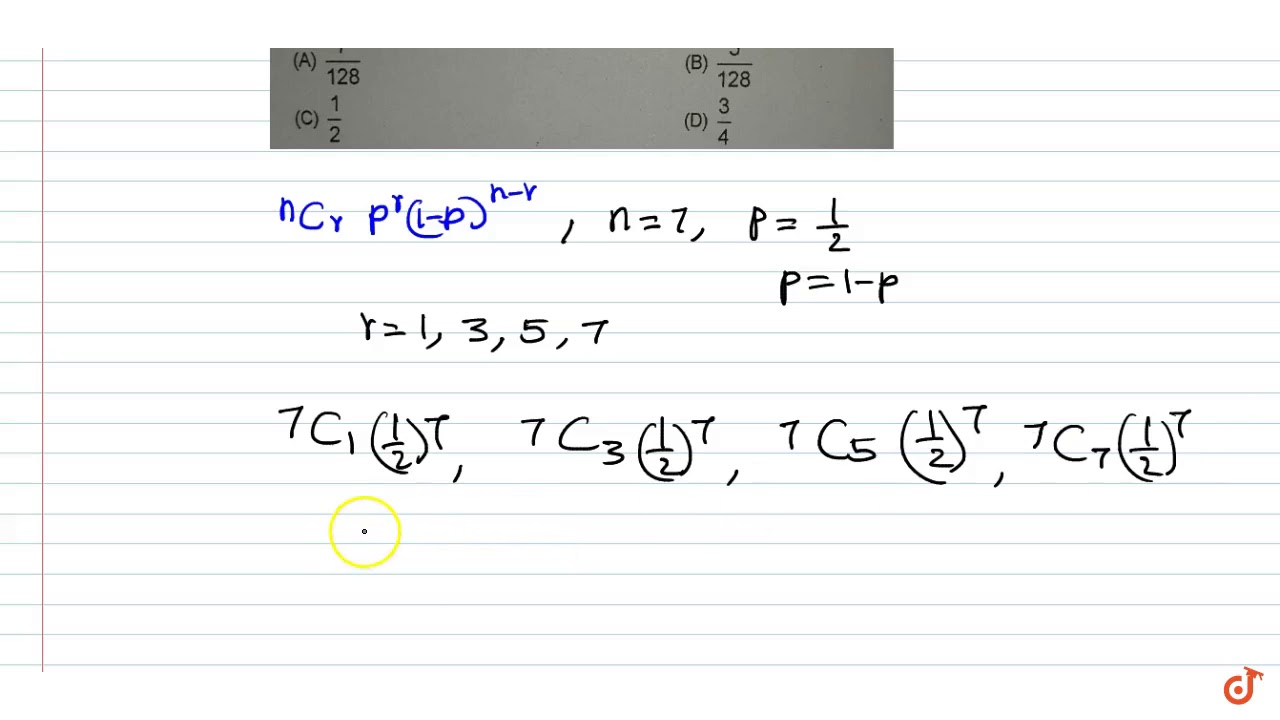 (A) 7/128 (B) 5/128
(C) 1/2 (D) 3/4
nCr p^r(1-p)^n-r , n=7, p=1/2
p=1-p
r=1, 3, 5, 7
7C1(1/2)^7, 7C3(1/2)^7, 7C5(1/2)^7, 7C7(1/2)^7